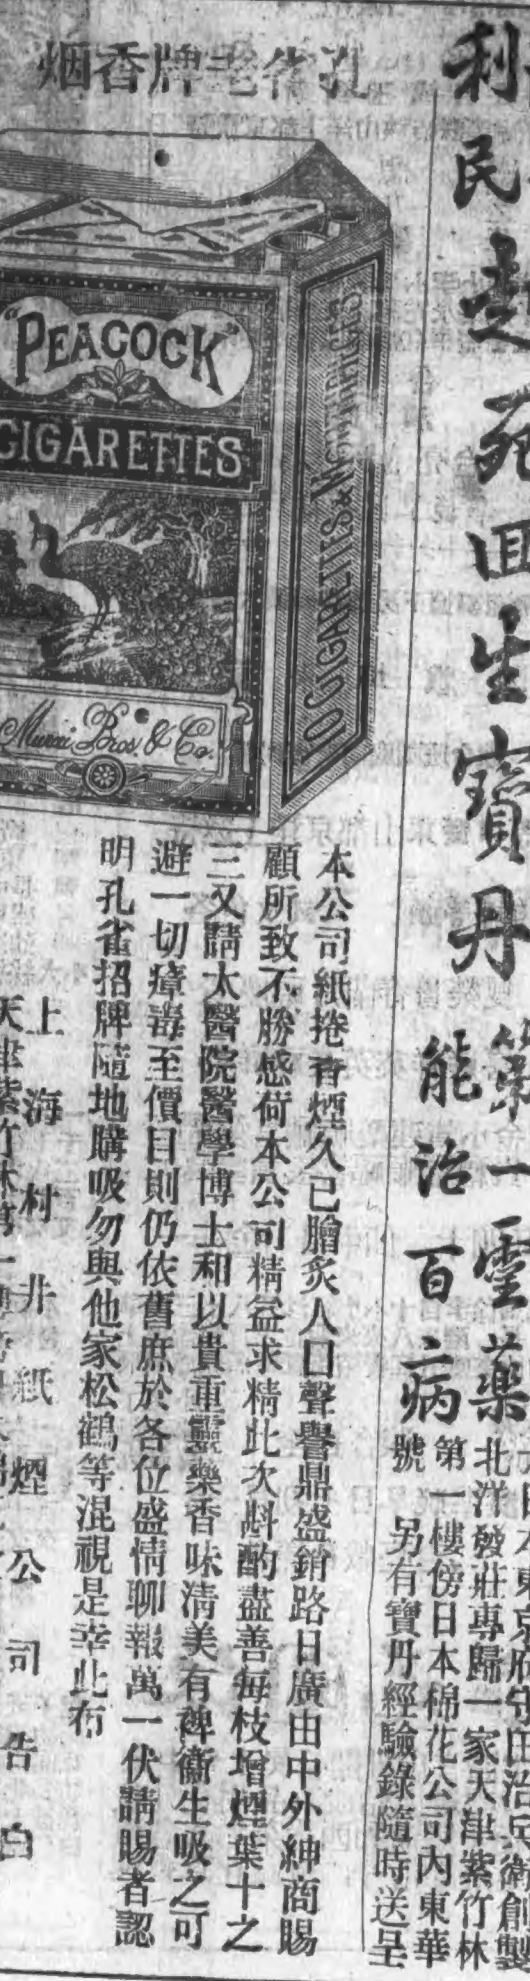 利民起死回生寶丹
第一靈藥
能治百病
日本東京府守田治兵衛創製
北洋發莊專歸一家天津紫竹林
第一樓傍日本棉花公司內東華
號 另有寶丹經驗錄隨時送呈
孔雀老牌香烟
"PEACOCK"
CIGARETTES
Murai Bros. & Co.
10 CIGARETTES & MOUTHPIECES
本公司紙捲香煙久已膾炙人口聲譽鼎盛銷路日廣由中外紳商賜
顧所致不勝感荷本公司精益求精此次斟酌盡善每枝增煙葉十之
三又請太醫院醫學博士和以貴重靈藥香味清美有裨衞生吸之可
避一切瘴毒至價目則仍依舊庶於各位盛情聊報萬一伏請賜者認
明孔雀招牌隨地購吸勿與他家松鶴等混視是幸此布
上海村井紙煙公司告白
天津紫竹林第一樓